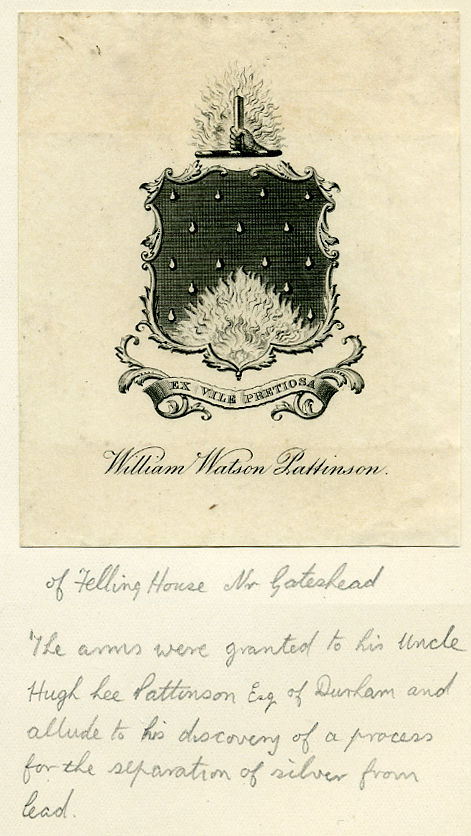 EX VILE PRETIOSA
William Watson Pattinson.
of Felling House Nr Gateshead
The arms were granted to his Uncle
Hugh Lee Pattinson Esq of Durham and
allude to his discovery of a process
for the separation of silver from
lead.